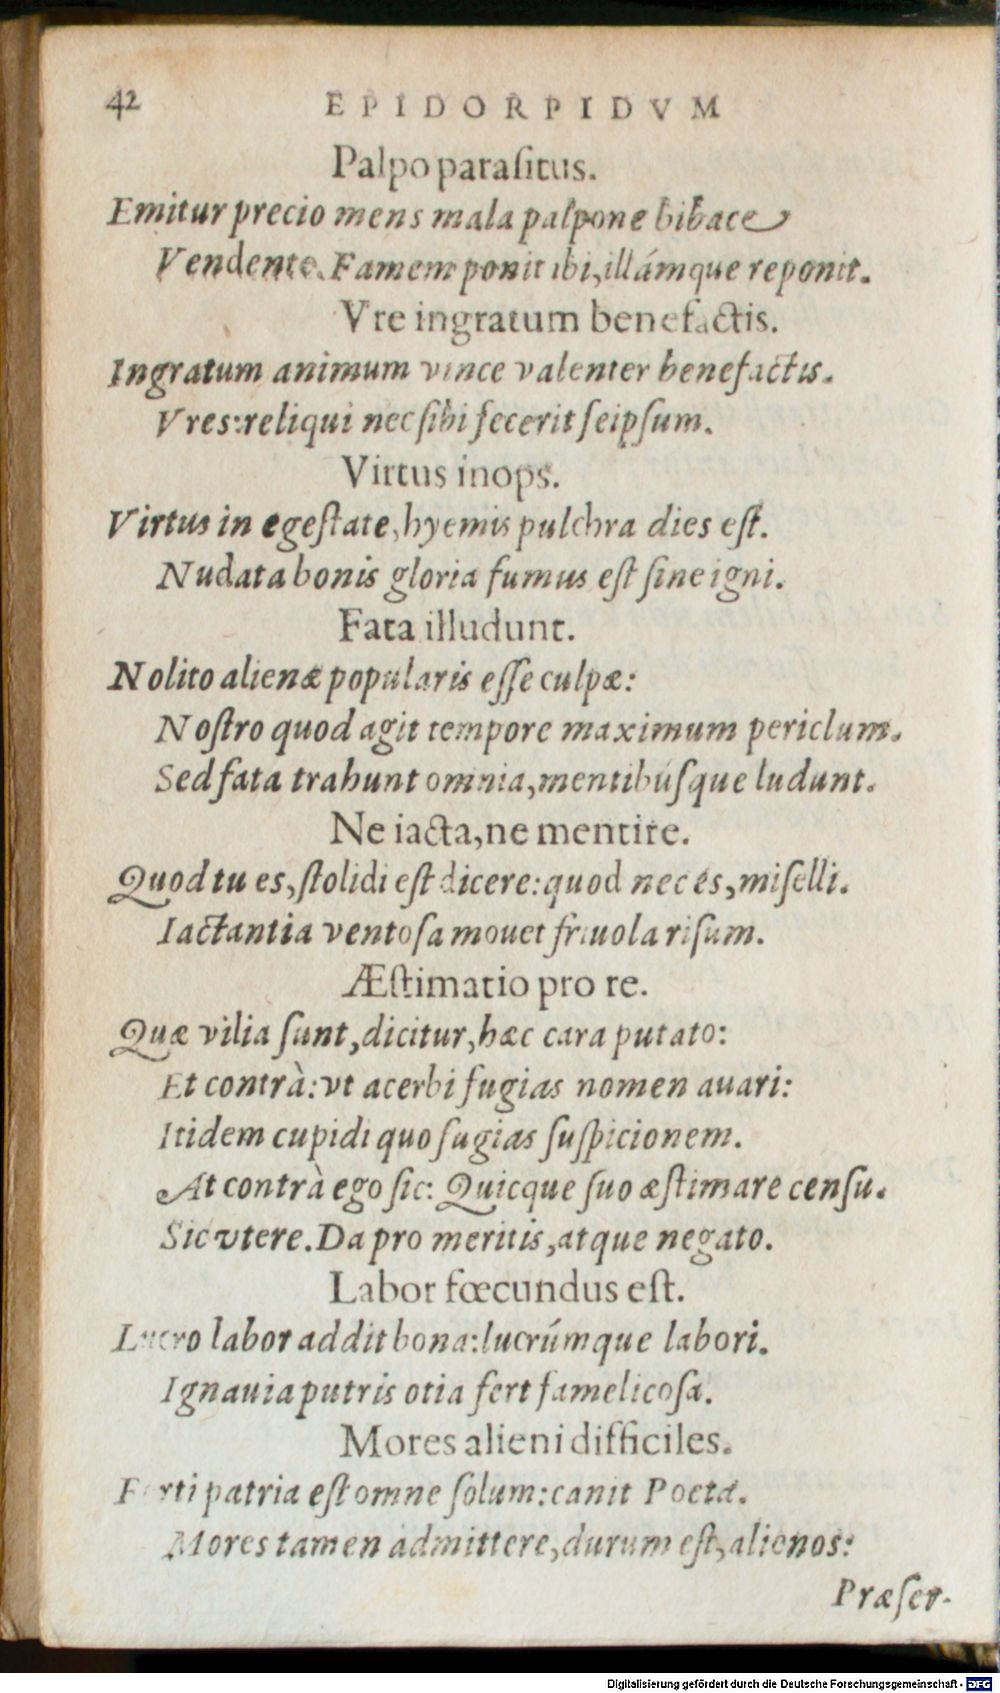 42 EPIDORPIDVM
Palpo parasitus.
Emitur precio mens mala palpone bibace
Vendente. Famem ponit ibi, illámque reponit.
Vre ingratum benefactis.
Ingratum animum vince valenter benefactis.
Vres: reliqui nec sibi fecerit seipsum.
Virtus inops.
Virtus in egestate, hyemis pulchra dies est.
Nudata bonis gloria fumus est sine igni.
Fata illudunt.
Nolito alienæ popularis esse culpæ:
Nostro quod agit tempore maximum periclum.
Sed fata trahunt omnia, mentibúsque ludunt.
Ne iacta, ne mentire.
Quod tu es, stolidi est dicere: quod nec es, miselli.
Iactantia ventosa mouet friuola risum.
Æstimatio pro re.
Quæ vilia sunt, dicitur, hæc cara putato:
Et contrà: vt acerbi fugias nomen auari:
Itidem cupidi quo fugias suspicionem.
At contrà ego sic: Quicque suo æstimare censu.
Sic vtere. Da pro meritis, atque negato.
Labor fœcundus est.
Lucro labor addit bona: lucrúmque labori.
Ignauia putris otia fert famelicosa.
Mores alieni difficiles.
Forti patria est omne solum: canit Poeta.
Mores tamen admittere, durum est, alienos:
Præser-
Digitalisierung gefördert durch die Deutsche Forschungsgemeinschaft - DFG